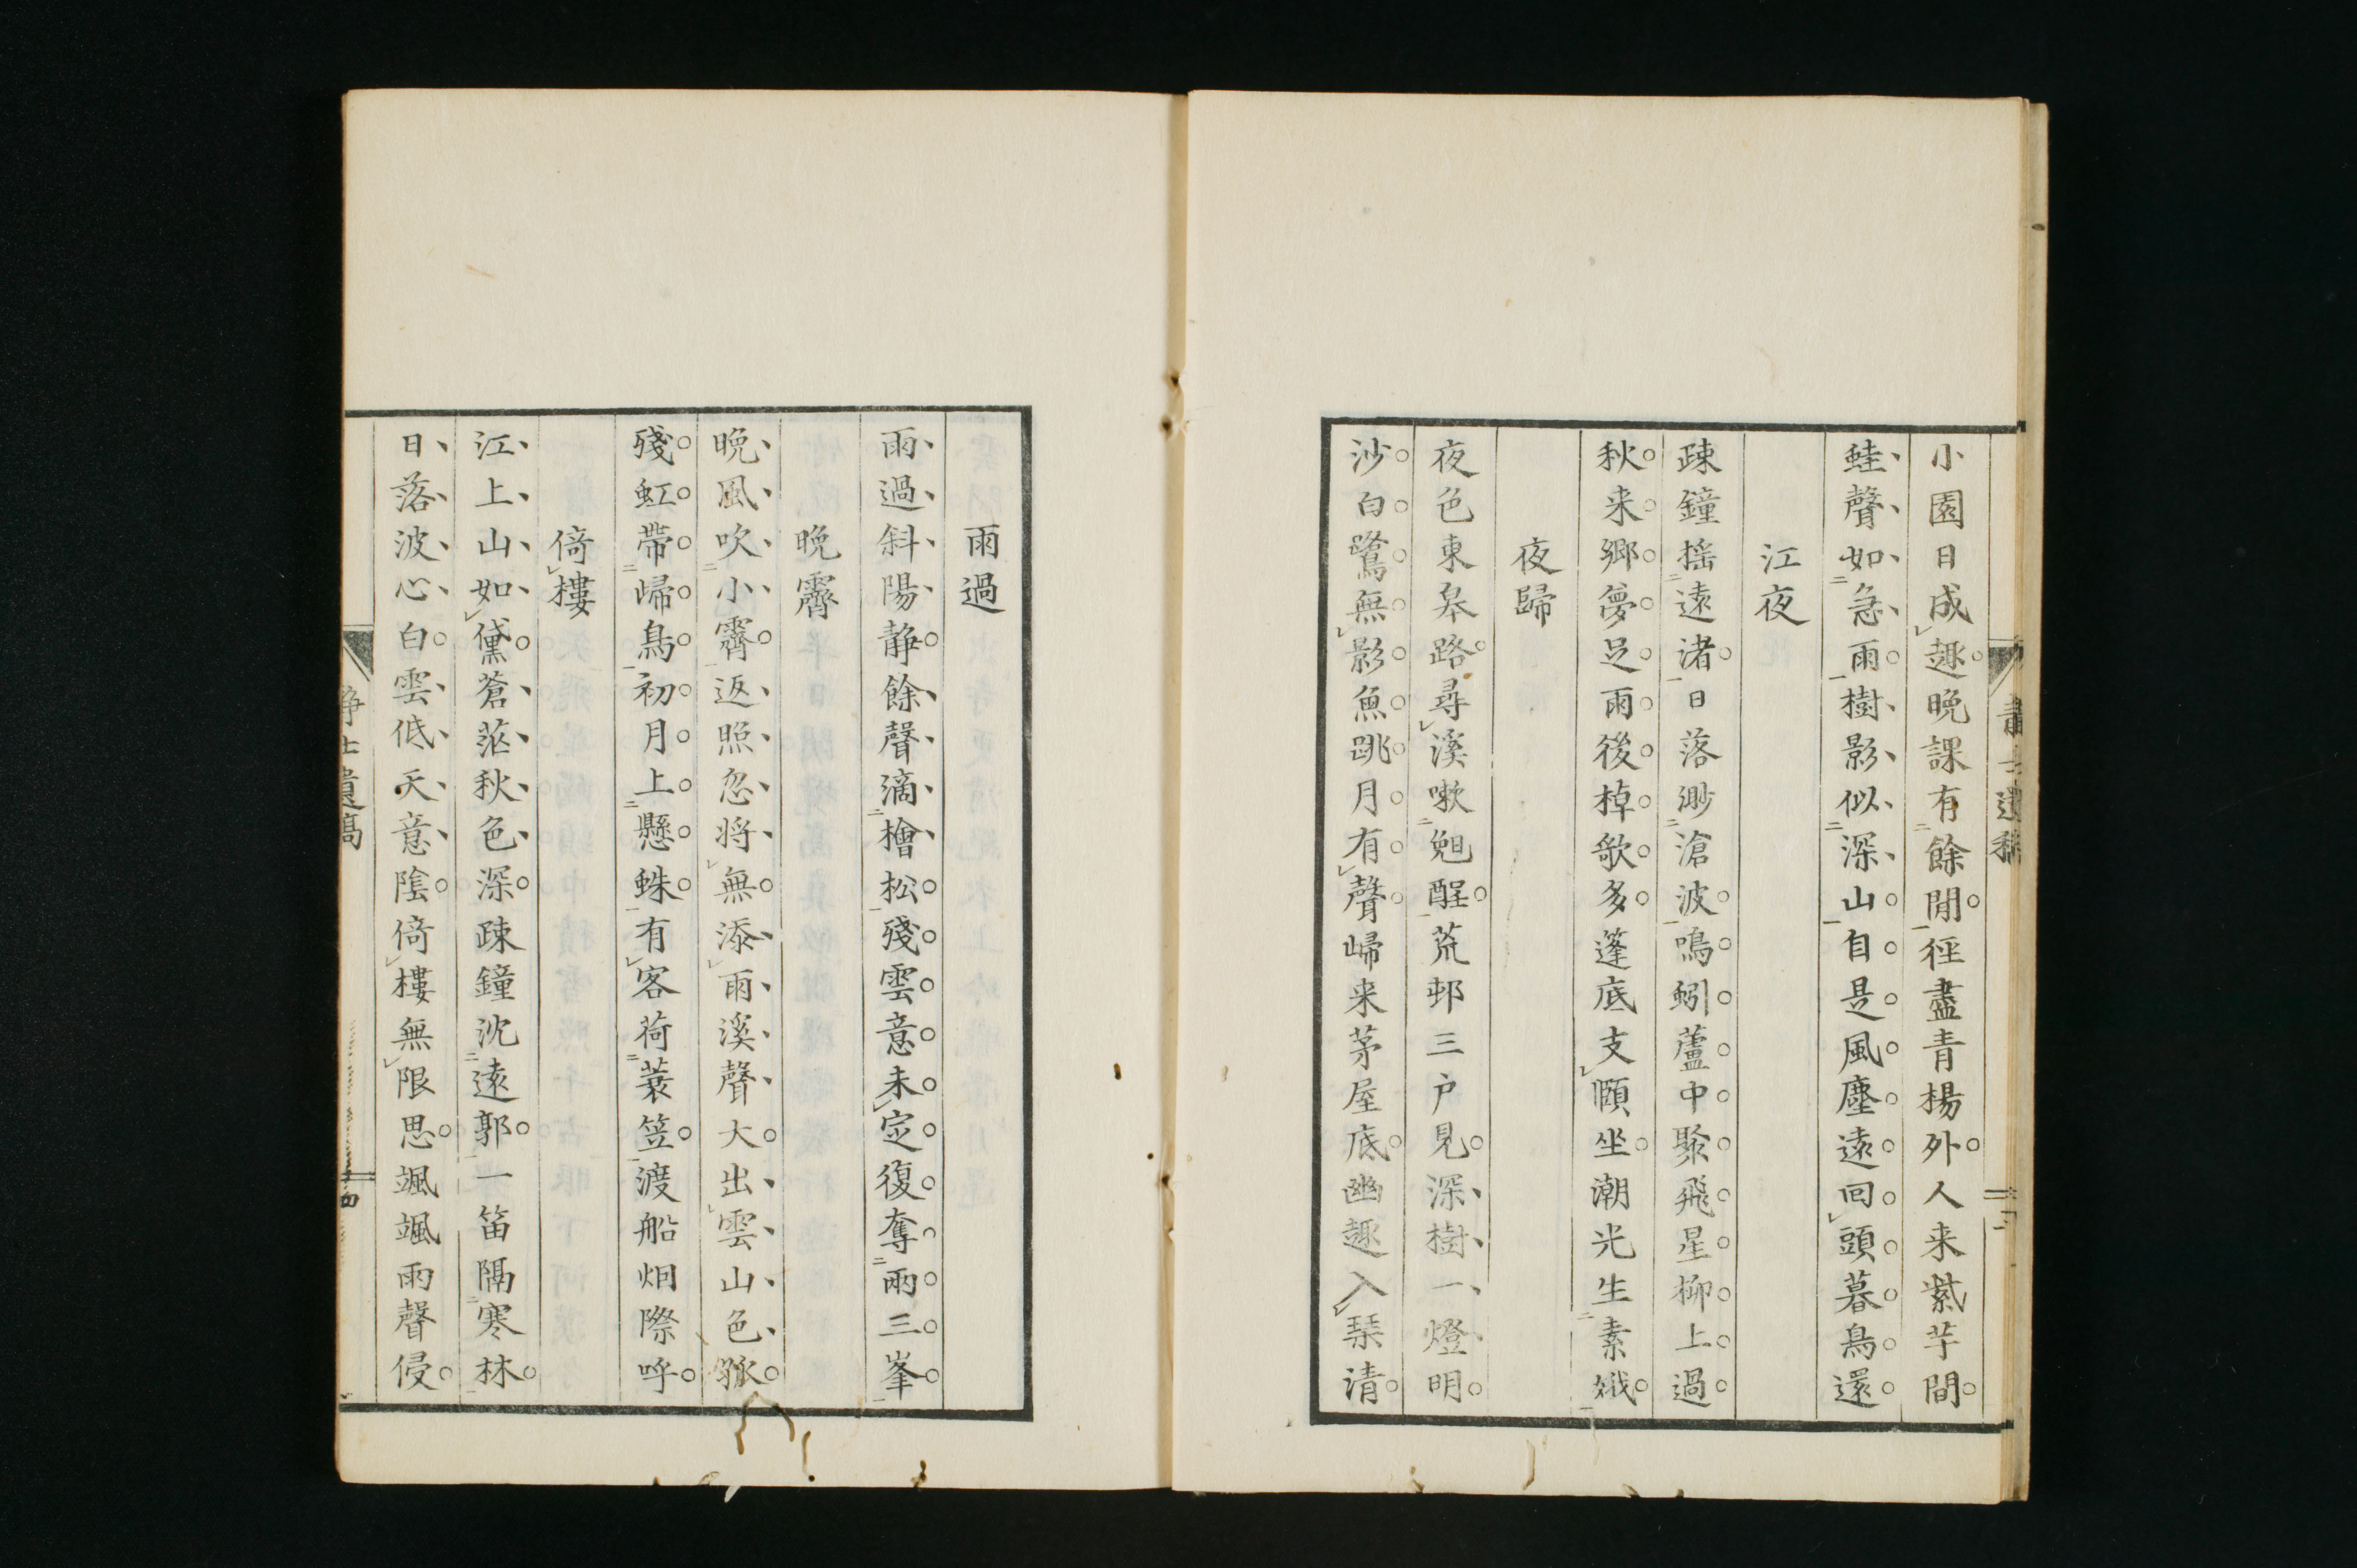 小園日成趣晚課有餘閒徑盡青楊外人来紫芋間
蛙聲如急雨樹影似深山自是風塵遠回頭暮鳥還
江夜
疎鐘揺遠渚日落渺滄波鳴蚓蘆中聚飛星柳上過
秋来鄉夢足雨後棹歌多蓬底支頤坐潮光生素娥
夜歸
夜色東皋路尋溪嗽魭醒荒邨三户見深樹一燈明
沙白鷺無影魚跳月有聲歸来茅屋底幽趣入琴清
雨過
雨過斜陽静餘聲滴檜松殘雲意未定復奪兩三峯
晚霽
晚風吹小霽返照忽将無添雨溪聲大出雲山色孤
殘虹帶歸鳥初月上懸蛛有客荷蓑笠渡船烟際呼
倚樓
江上山如黛蒼茫秋色深疎鐘沈遠郭一笛隔寒林
日落波心白雲低天意陰倚樓無限思颯颯雨聲侵
士遺稿 四